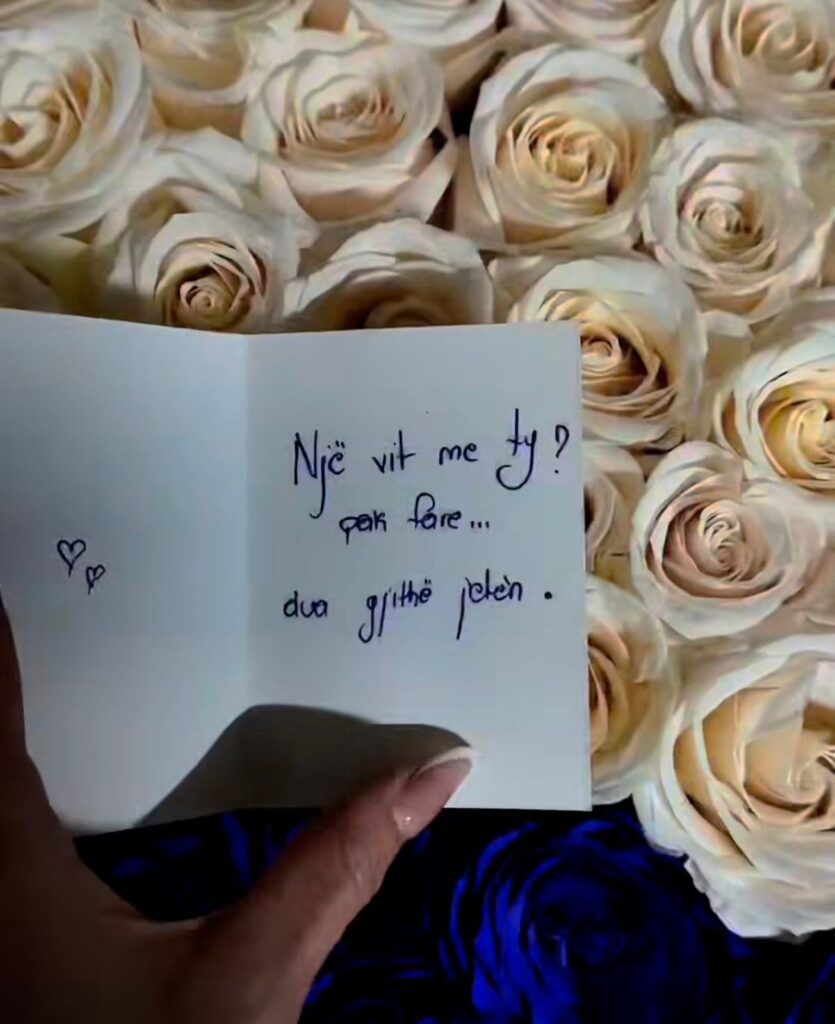 Një vit me ty?
pak fare...
dua gjithë jetën.